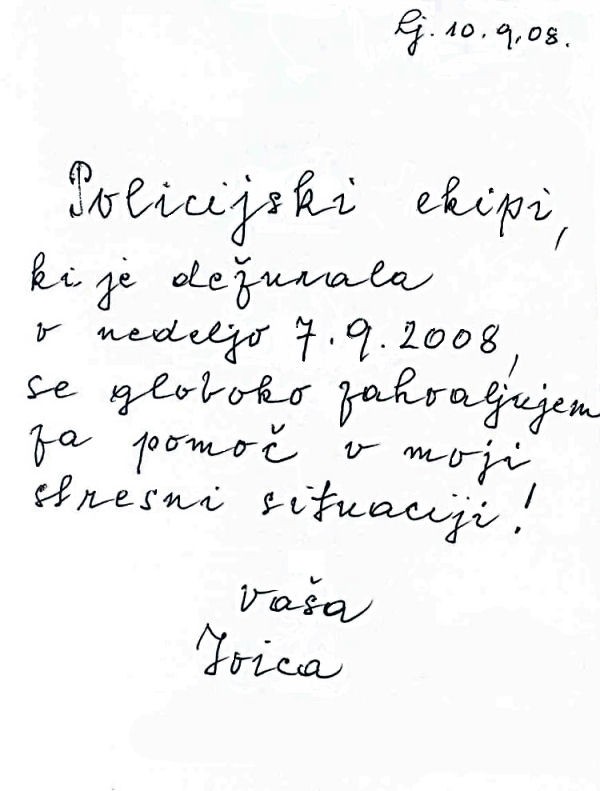 Lj. 10.9.08.
Policijski ekipi,
ki je dežurala
v nedeljo 7.9.2008,
se globoko zahvaljujem
za pomoč v moji
stresni situaciji!
Vaša
Ivica